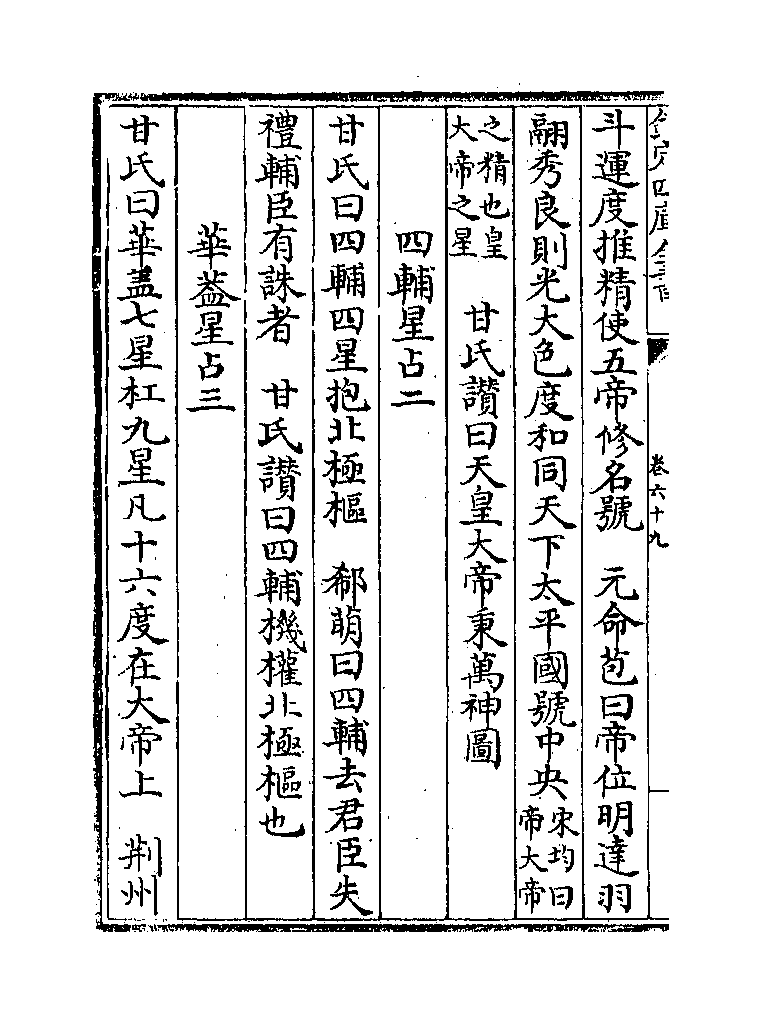 欽定四庫全書
卷六十九
斗運度推精使五帝修名號　元命苞曰帝位明達羽
翮秀良則光大色度和同天下太平國號中央宋均曰帝大帝
之精也皇大帝之星　甘氏讃曰天皇大帝秉萬神圖
四輔星占二
甘氏曰四輔四星抱北極樞　郗萌曰四輔去君臣失
禮輔臣有誅者　甘氏讃曰四輔機權北極樞也
華葢星占三
甘氏曰華盖七星杠九星凡十六度在大帝上　荆州